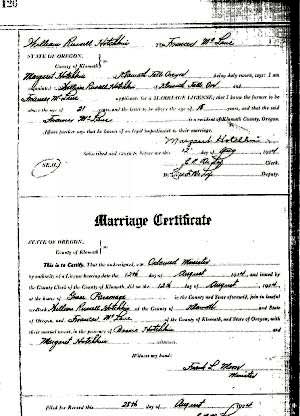 126
William Russell Hotchkin Frances Mc Lane
STATE OF OREGON,
County of Klamath
Margaret Hotchkin Klamath Falls Oregon being duly sworn, says: I am
acquainted William Russell Hotchkin of Klamath Falls Ore and
Frances Mc Lane applicants for a MARRIAGE LICENSE; that I know the former to be
above the age of 21 years, and the latter to be above the age of 18 years, and that the said
Frances Mc Lane is a resident of Klamath County, Oregon.
Affiant further says that he knows of no legal impediment to their marriage.
Margaret Hotchkin
Subscribed and sworn to before me this 12 day of Aug
Clerk.
(SEAL) By Deputy
Marriage Certificate
STATE OF OREGON,
County of Klamath
This is to Certify, That the undersigned, a Ordained Minister
by authority of a License bearing date the 12th day of August and issued by
the County Clerk of the County of Klamath, did on the 12th day of August
at the house of Parsonage in the County and State aforesaid, join in lawful
wedlock William Russell Hotchkin of the County of Klamath and State
of Oregon, and Frances Mc Lane of the County of Klamath, and State of Oregon, with
their mutual assent, in the presence of Hotchkin and
Margaret Hotchkin
Witness my hand:
Frank L. Moore
Minister
Filed for Record this 28th day of August